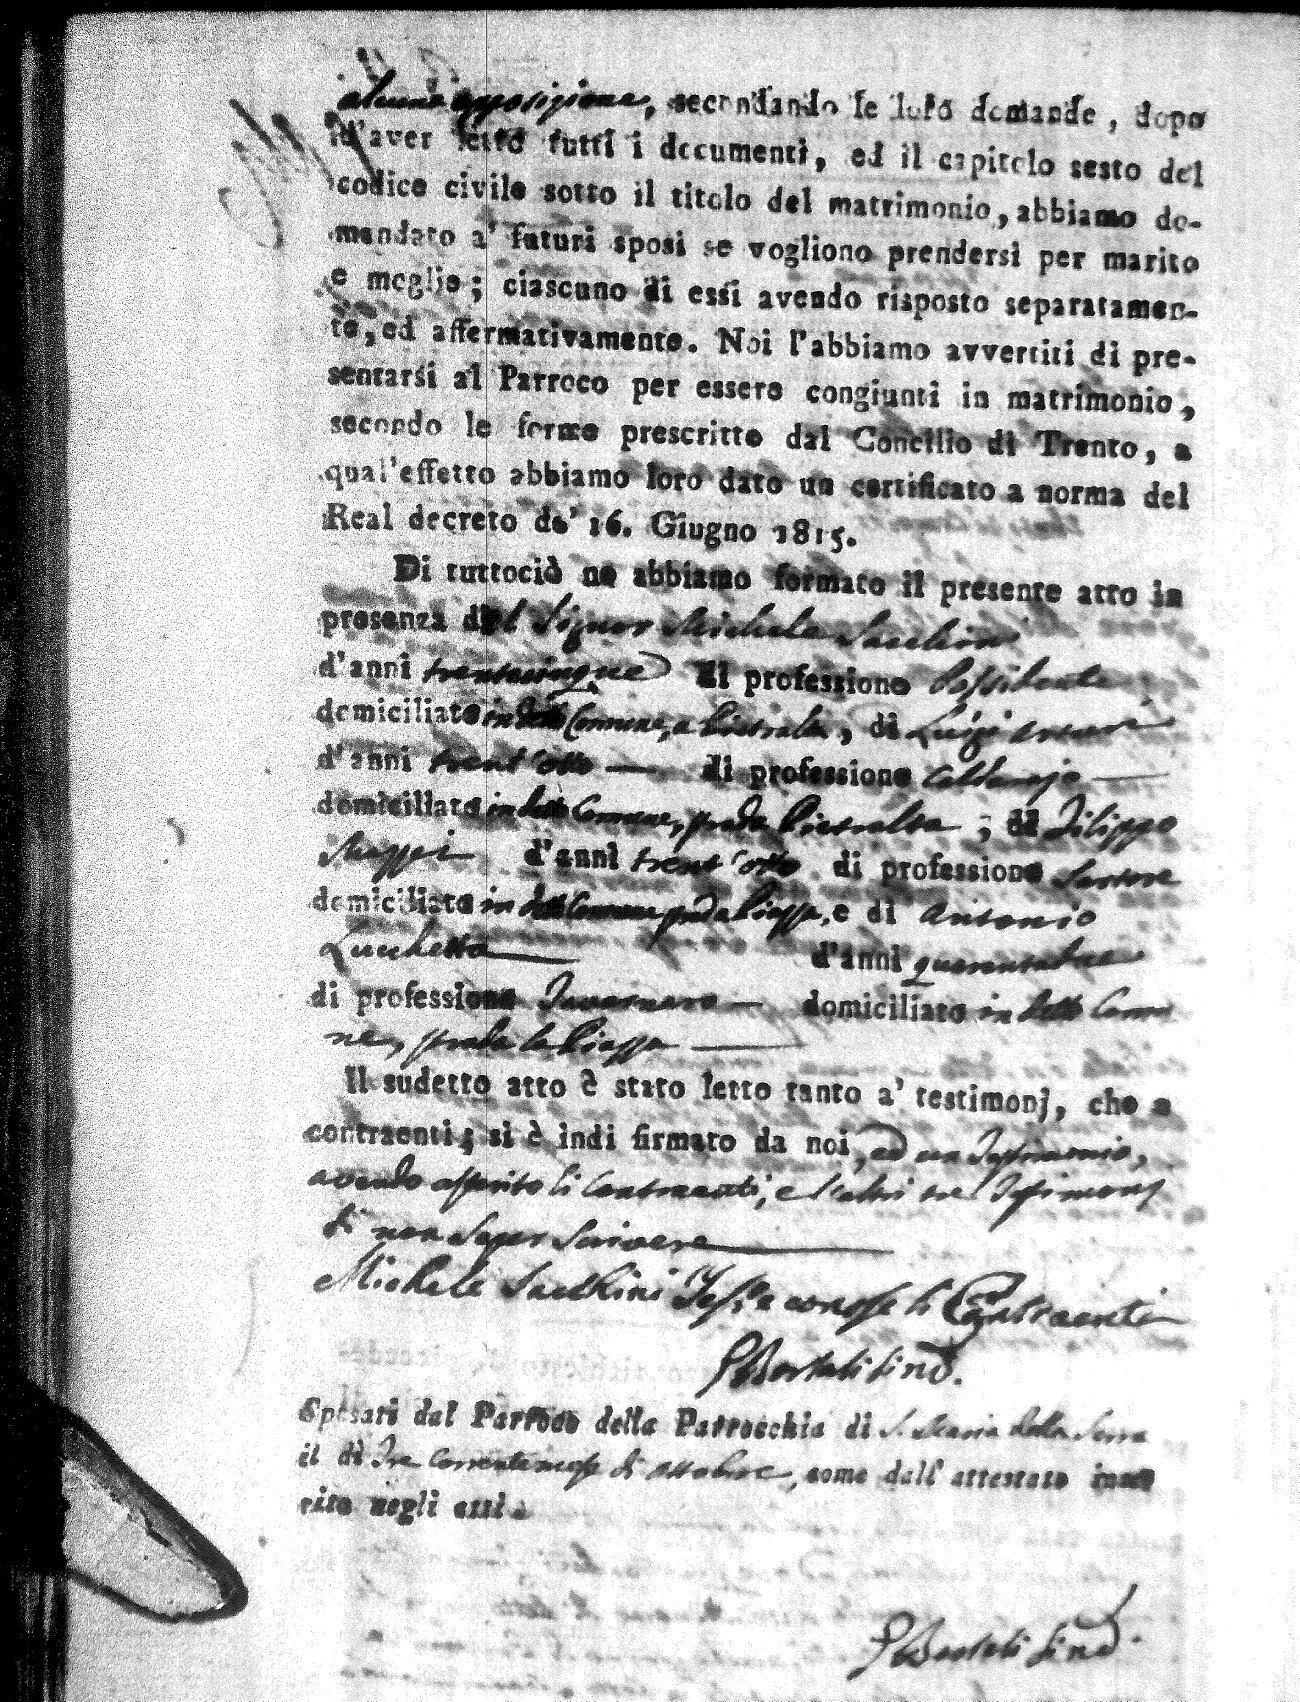 alcuna opposizione, secondando le loro domande, dopo
d'aver letto tutti i documenti, ed il capitolo sesto del
codice civile sotto il titolo del matrimonio, abbiamo do-
mandato a' futuri sposi se vogliono prendersi per marito
e moglie; ciascuno di essi avendo risposto separatamen-
te, ed affermativamente. Noi l'abbiamo avvertiti di pre-
sentarsi al Parroco per essere congiunti in matrimonio,
secondo le forme prescritte dal Concilio di Trento, a
qual'effetto abbiamo loro dato un certificato a norma del
Real decreto de' 16. Giugno 1815.
Di tuttociò ne abbiamo formato il presente atto in
presenza del Signor Michele Sacchini
d'anni trentacinque di professione Possidente
domiciliato in detto Comune, a Pietralta, di Luigi
d'anni trent'otto di professione
domiciliato in detto Comune, strada Pietralta; di Filippo
d'anni trent'otto di professione Sartore
domiciliato in detto Comune strada Piazza, e di Antonio
Lucchetta d'anni quarantatre
di professione Tavernaro domiciliato in detto Comu
ne, strada la Piazza
Il sudetto atto è stato letto tanto a' testimonj, che a
contraenti; si è indi firmato da noi, ed un Testimonio,
avendo asserito li Contraenti, e l'altri tre Testimonj
di non saper scrivere
Michele Sacchini Test.e conosce li Contraenti
Sind.
Sposati dal Parroco della Parrocchia di S. Maria della Serra
il dì Tre Corrente mese di Ottobre, come dall'attestato inse
rito negli atti.
Sind.